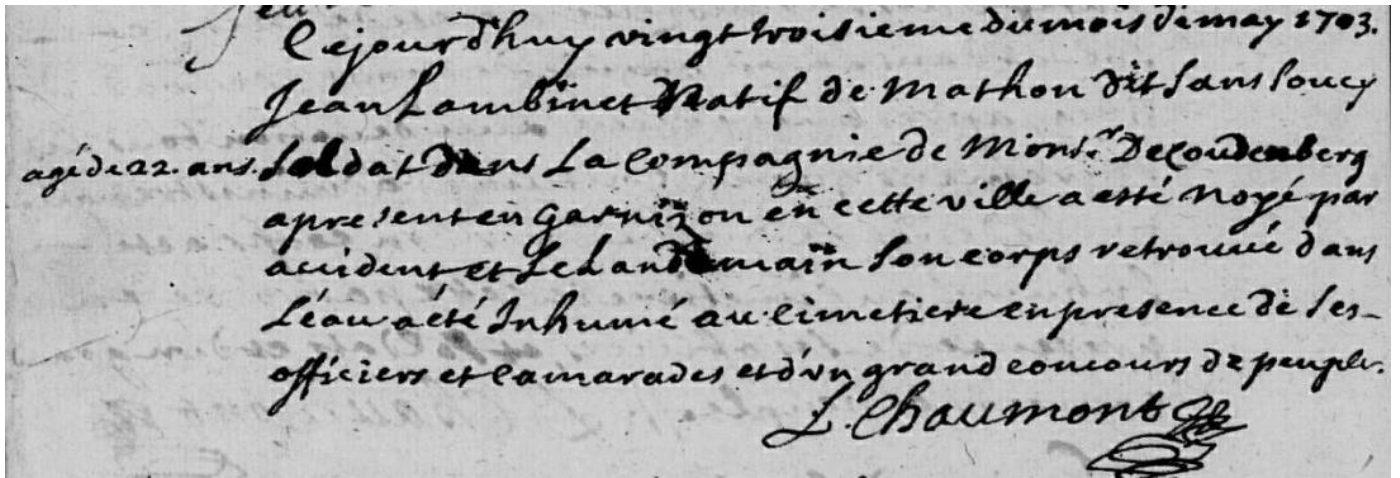 Cejourd'huy vingt troisieme du mois de may 1703.
Jean Lambinet Natif de Mathon dit sans soucy
agé de 22. ans. Soldat dans La Compagnie de Mons.r Decoudenberg
apresent en garnizon en cette ville a esté Noyé par
accident et Le Landemain son corps retrouvé dans
L'éau a été Inhumé au cimetiere en presence de ses
officiers et Camarades et d'un grand concours de peuple.
L. Chaumont